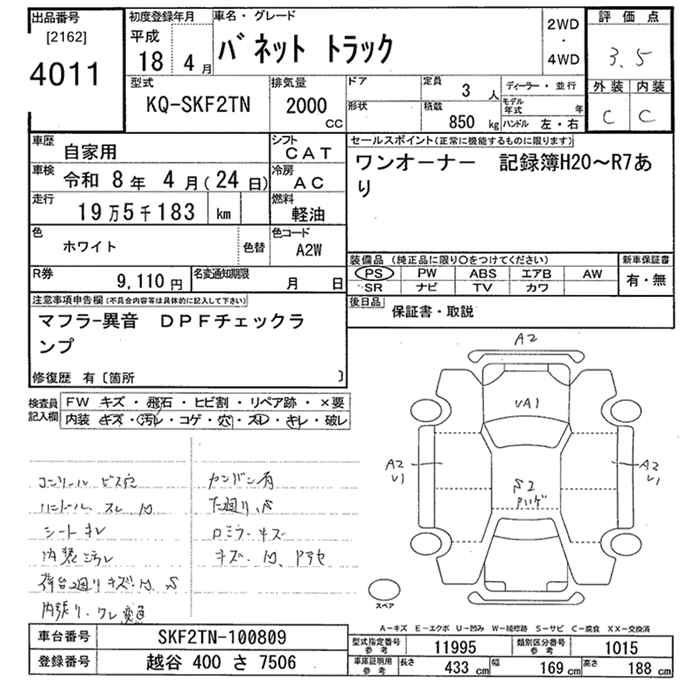 出品番号
[2162]
4011
初度登録年月
平成
18 4月
車名・グレード
バネット トラック
2WD
・
4WD
評価点
3.5
型式
KQ-SKF2TN
排気量
2000 cc
ドア
形状
定員 3人
積数 850 kg
ディーラー・並行
モデル年式 年
ハンドル 左・右
外装 内装
C C
車歴 自家用
シフト CAT
車検 令和 8年 4月(24日)
冷房 AC
走行 19万5千183 km
燃料 軽油
色 ホワイト 色替
色コード A2W
R券 9,110円
名変通知期限 月 日
セールスポイント(正常に機能するものに限ります)
ワンオーナー 記録簿H20〜R7あ
り
装備品(純正品に限り○をつけてください)
PS PW ABS エアB AW
SR ナビ TV カワ
新車保証書
有・無
後日品
保証書・取説
注意事項申告欄(不具合内容等は具体的に記入して下さい)
マフラー異音 DPFチェックラ
ンプ
修復歴 有〔箇所 〕
検査員記入欄
FW キズ・飛石・ヒビ割・リペア跡・×要
内装 キズ・汚レ・コゲ・穴・スレ・キレ・破レ
コンソール ビス穴
ハンドル スレ
シートキレ
内装汚レ
荷台廻りキズ凹S
内張り・ワレ
カンバン有
下廻りS
ロミラーキズ
キズ・凹
A2
UA1
A2
U1
A2
U1
S2
スペア
A-キズ E-エクボ U-凹み W-補修跡 S-サビ C-腐食 XX-交換済
車台番号 SKF2TN-100809
登録番号 越谷 400 さ 7506
型式指定番号参考 11995
類別区分番号参考 1015
車庫証明用参考 長さ 433cm 幅 169cm 高さ 188cm